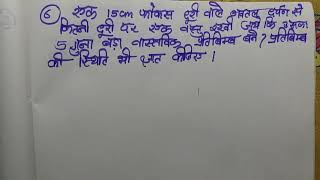 ⑥ एक 15cm फोकस दूरी वाले अवतल दर्पण से
कितनी दूरी पर एक वस्तु रखी जाये कि उसका
5 गुना बड़ा वास्तविक प्रतिबिम्ब बने? प्रतिबिम्ब
की स्थिति भी ज्ञात कीजिए।